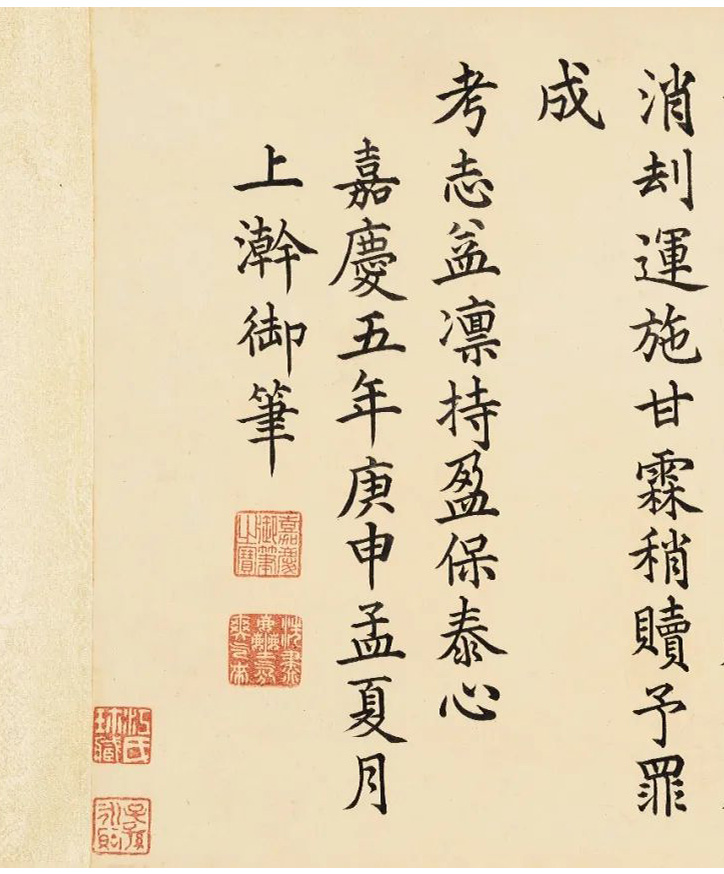 消刦運施甘霖稍贖予罪
成
考志益凛持盈保泰心
嘉慶五年庚申孟夏月
上澣御筆
嘉慶御筆之寶